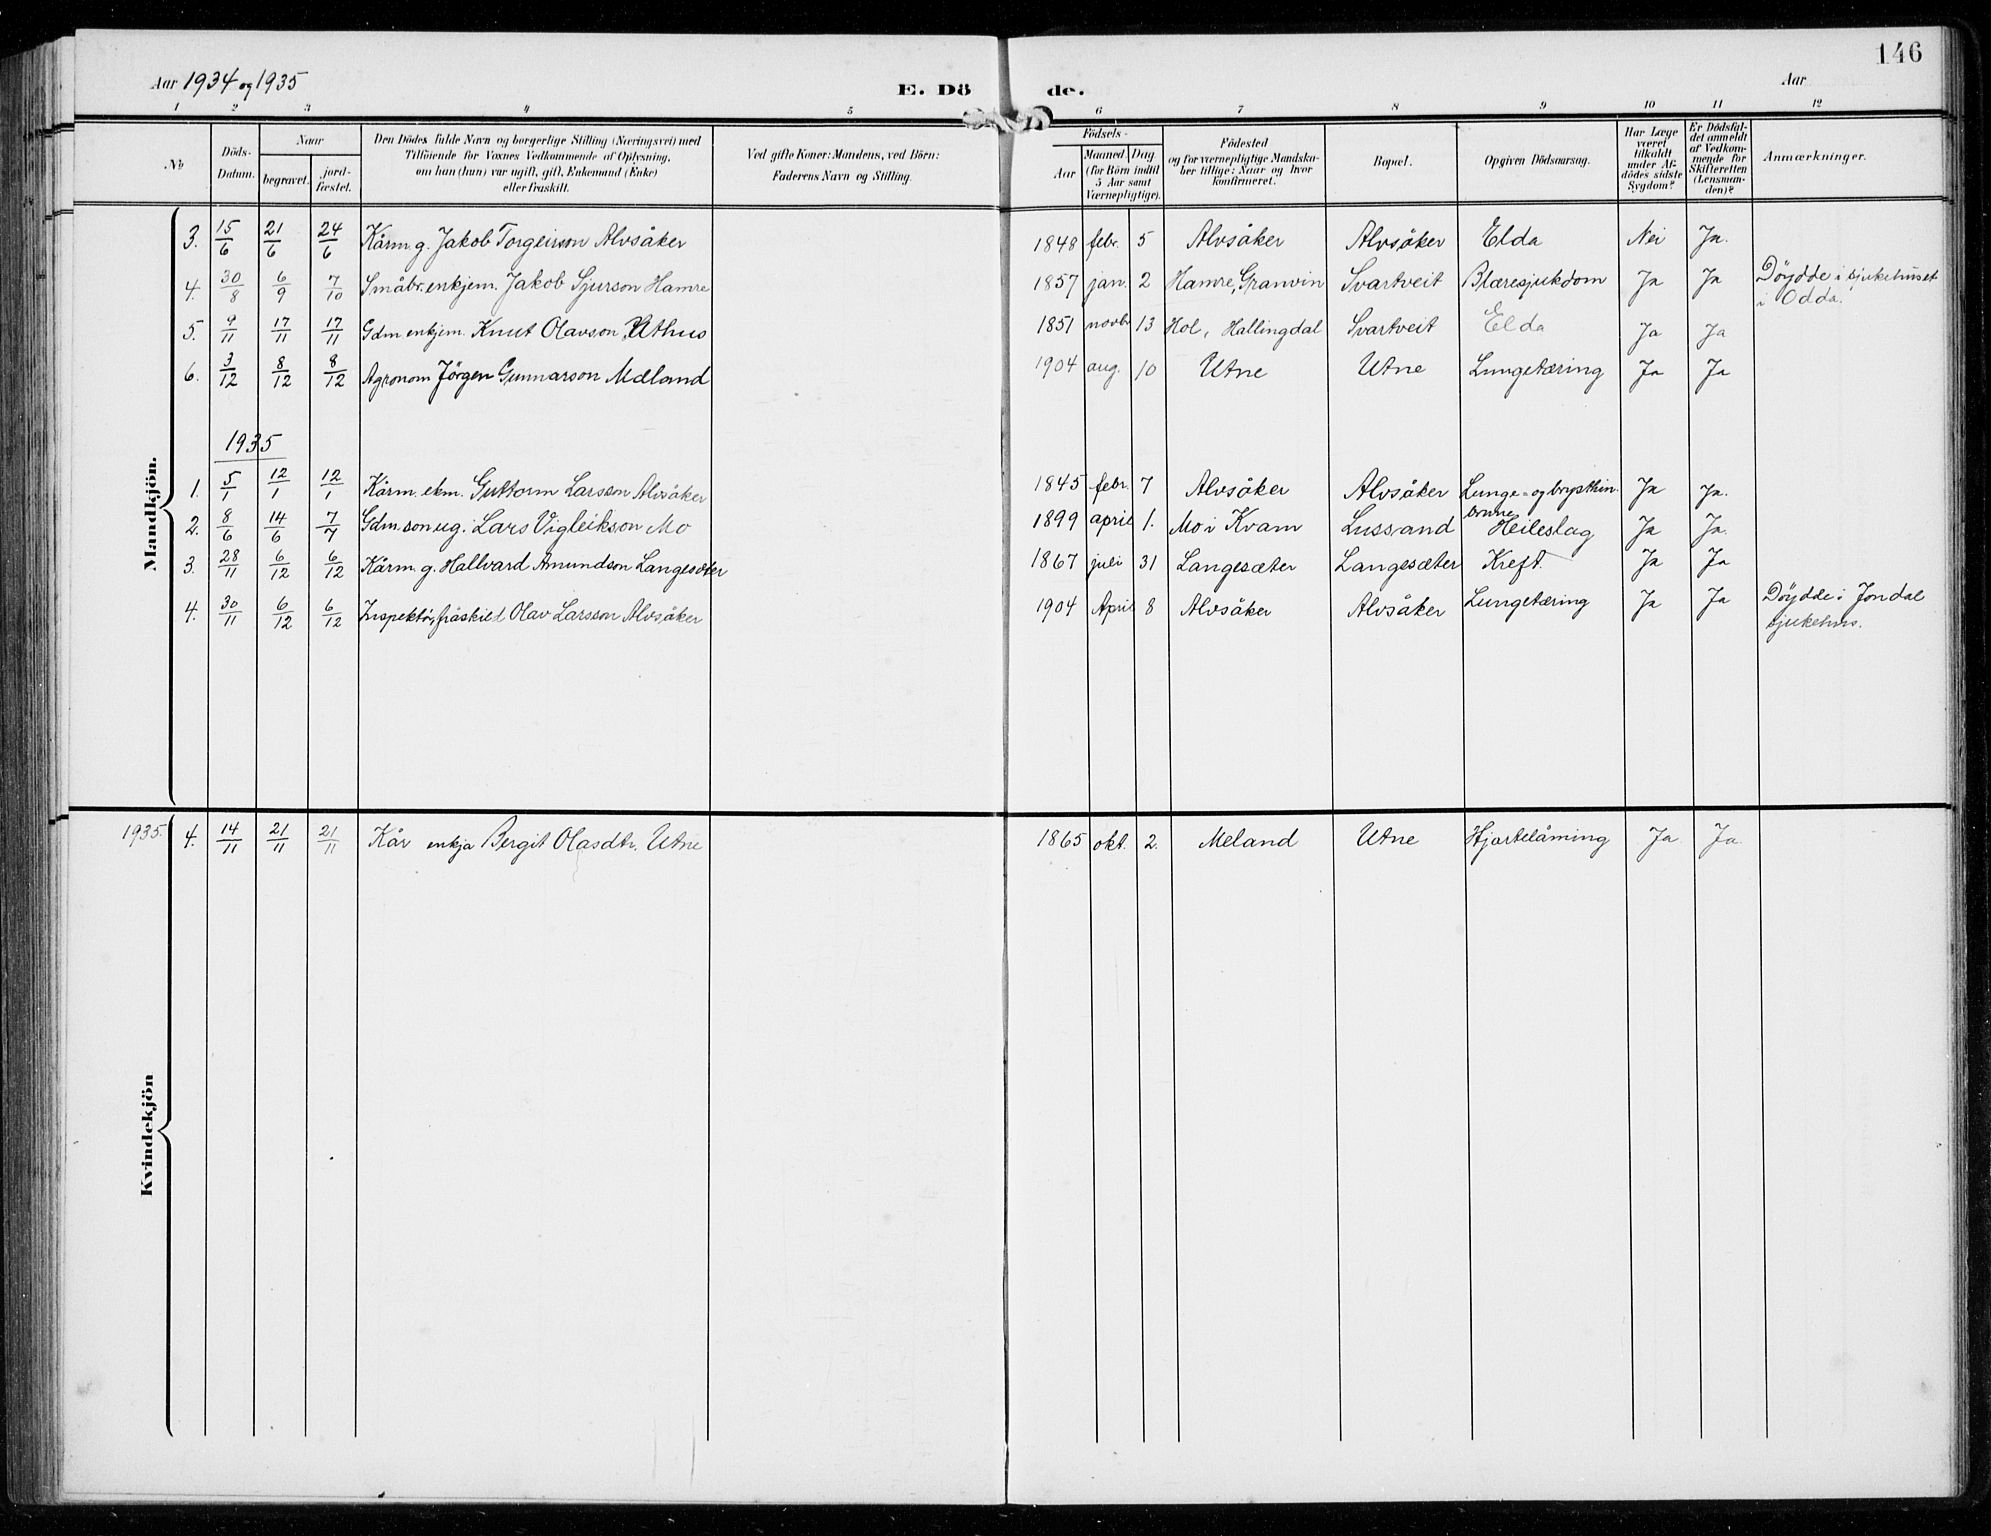 146
Aar 1934 og 1935
E. Dö de.
Aar
1 2 3 4 5 6 7 8 9 10 11 12
No
Döds-Datum.
Naar
begravet.
jord-fæstet.
Den Dödes fulde Navn og borgerlige Stilling (Næringsvei) med
Tilföiende for Voxnes Vedkommende af Oplysning,
om han (hun) var ugift, gift, Enkemand (Enke)
eller fraskilt.
Ved gifte Koner: Mandens, ved Börn:
Faderens Navn og Stilling.
Födsels-
Aar
Maaned Dag
(for Börn indtil
5 Aar samt
Værnepligtige).
Födested
og for værnepligtige Mandska-
ber tillige: Naar og hvor
konfirmeret.
Bopæl.
Opgiven Dödsaarsag.
Har Læge
været
tilkaldt
under Af-
dödes sidste
Sygdom?
Er Dödsfal-
det anmeldt
af Vedkom-
mende for
Skifteretten
(Lensman-
den)?
Anmærkninger.
Mandkjön.
3. 15/6 21/6 24/6 Kårm. g. Jakob Torgeirson Alvsåker 1848 febr. 5 Alvsåker Alvsåker Elda Nei Ja.
4. 30/8 6/9 7/10 Småbr. enkjem. Jakob Sjurson Hamre 1857 jan. 2 Hamre, Granvin Svartveit Blæresjukdom Ja Ja Döydde i sjukehuset
i Odda.
5. 9/11 17/11 17/11 Gdm enkjem. Knut Olavson Athus 1851 novbr 13 Hol, Hallingdal Svartveit Elda Ja Ja
6. 3/12 8/12 8/12 Agronom Jörgen Gunnarson Mæland 1904 aug. 10 Utne Utne Lungetæring Ja Ja
1935
1. 5/1 12/1 12/1 Kårm. ekm. Guttorm Larsson Alvsåker 1845 febr. 7 Alvsåker Alvsåker Lunge- og brysthin- Ja Ja.
brune
2. 8/6 14/6 7/7 Gdm. son ug. Lars Vigleikson Mo 1899 april 1. Mo i Kvam Lussand Heileslag Ja Ja.
3. 28/11 6/12 6/12 Kårm. g. Hallvard Amundson Langesæter 1867 juli 31 Langesæter Langesæter Kreft. Ja Ja
4. 30/11 6/12 6/12 Inspektör, fråskild Olav Larsson Alvsåker 1904 April 8 Alvsåker Alvsåker Lungetæring Ja Ja Döydde i Jondal
sjukehus.
Kvindekjön
1935. 4. 14/11 21/11 21/11 Kår enkja Bergit Olasdtr. Utne 1865 okt. 2. Meland Utne Hjartelåming Ja Ja.